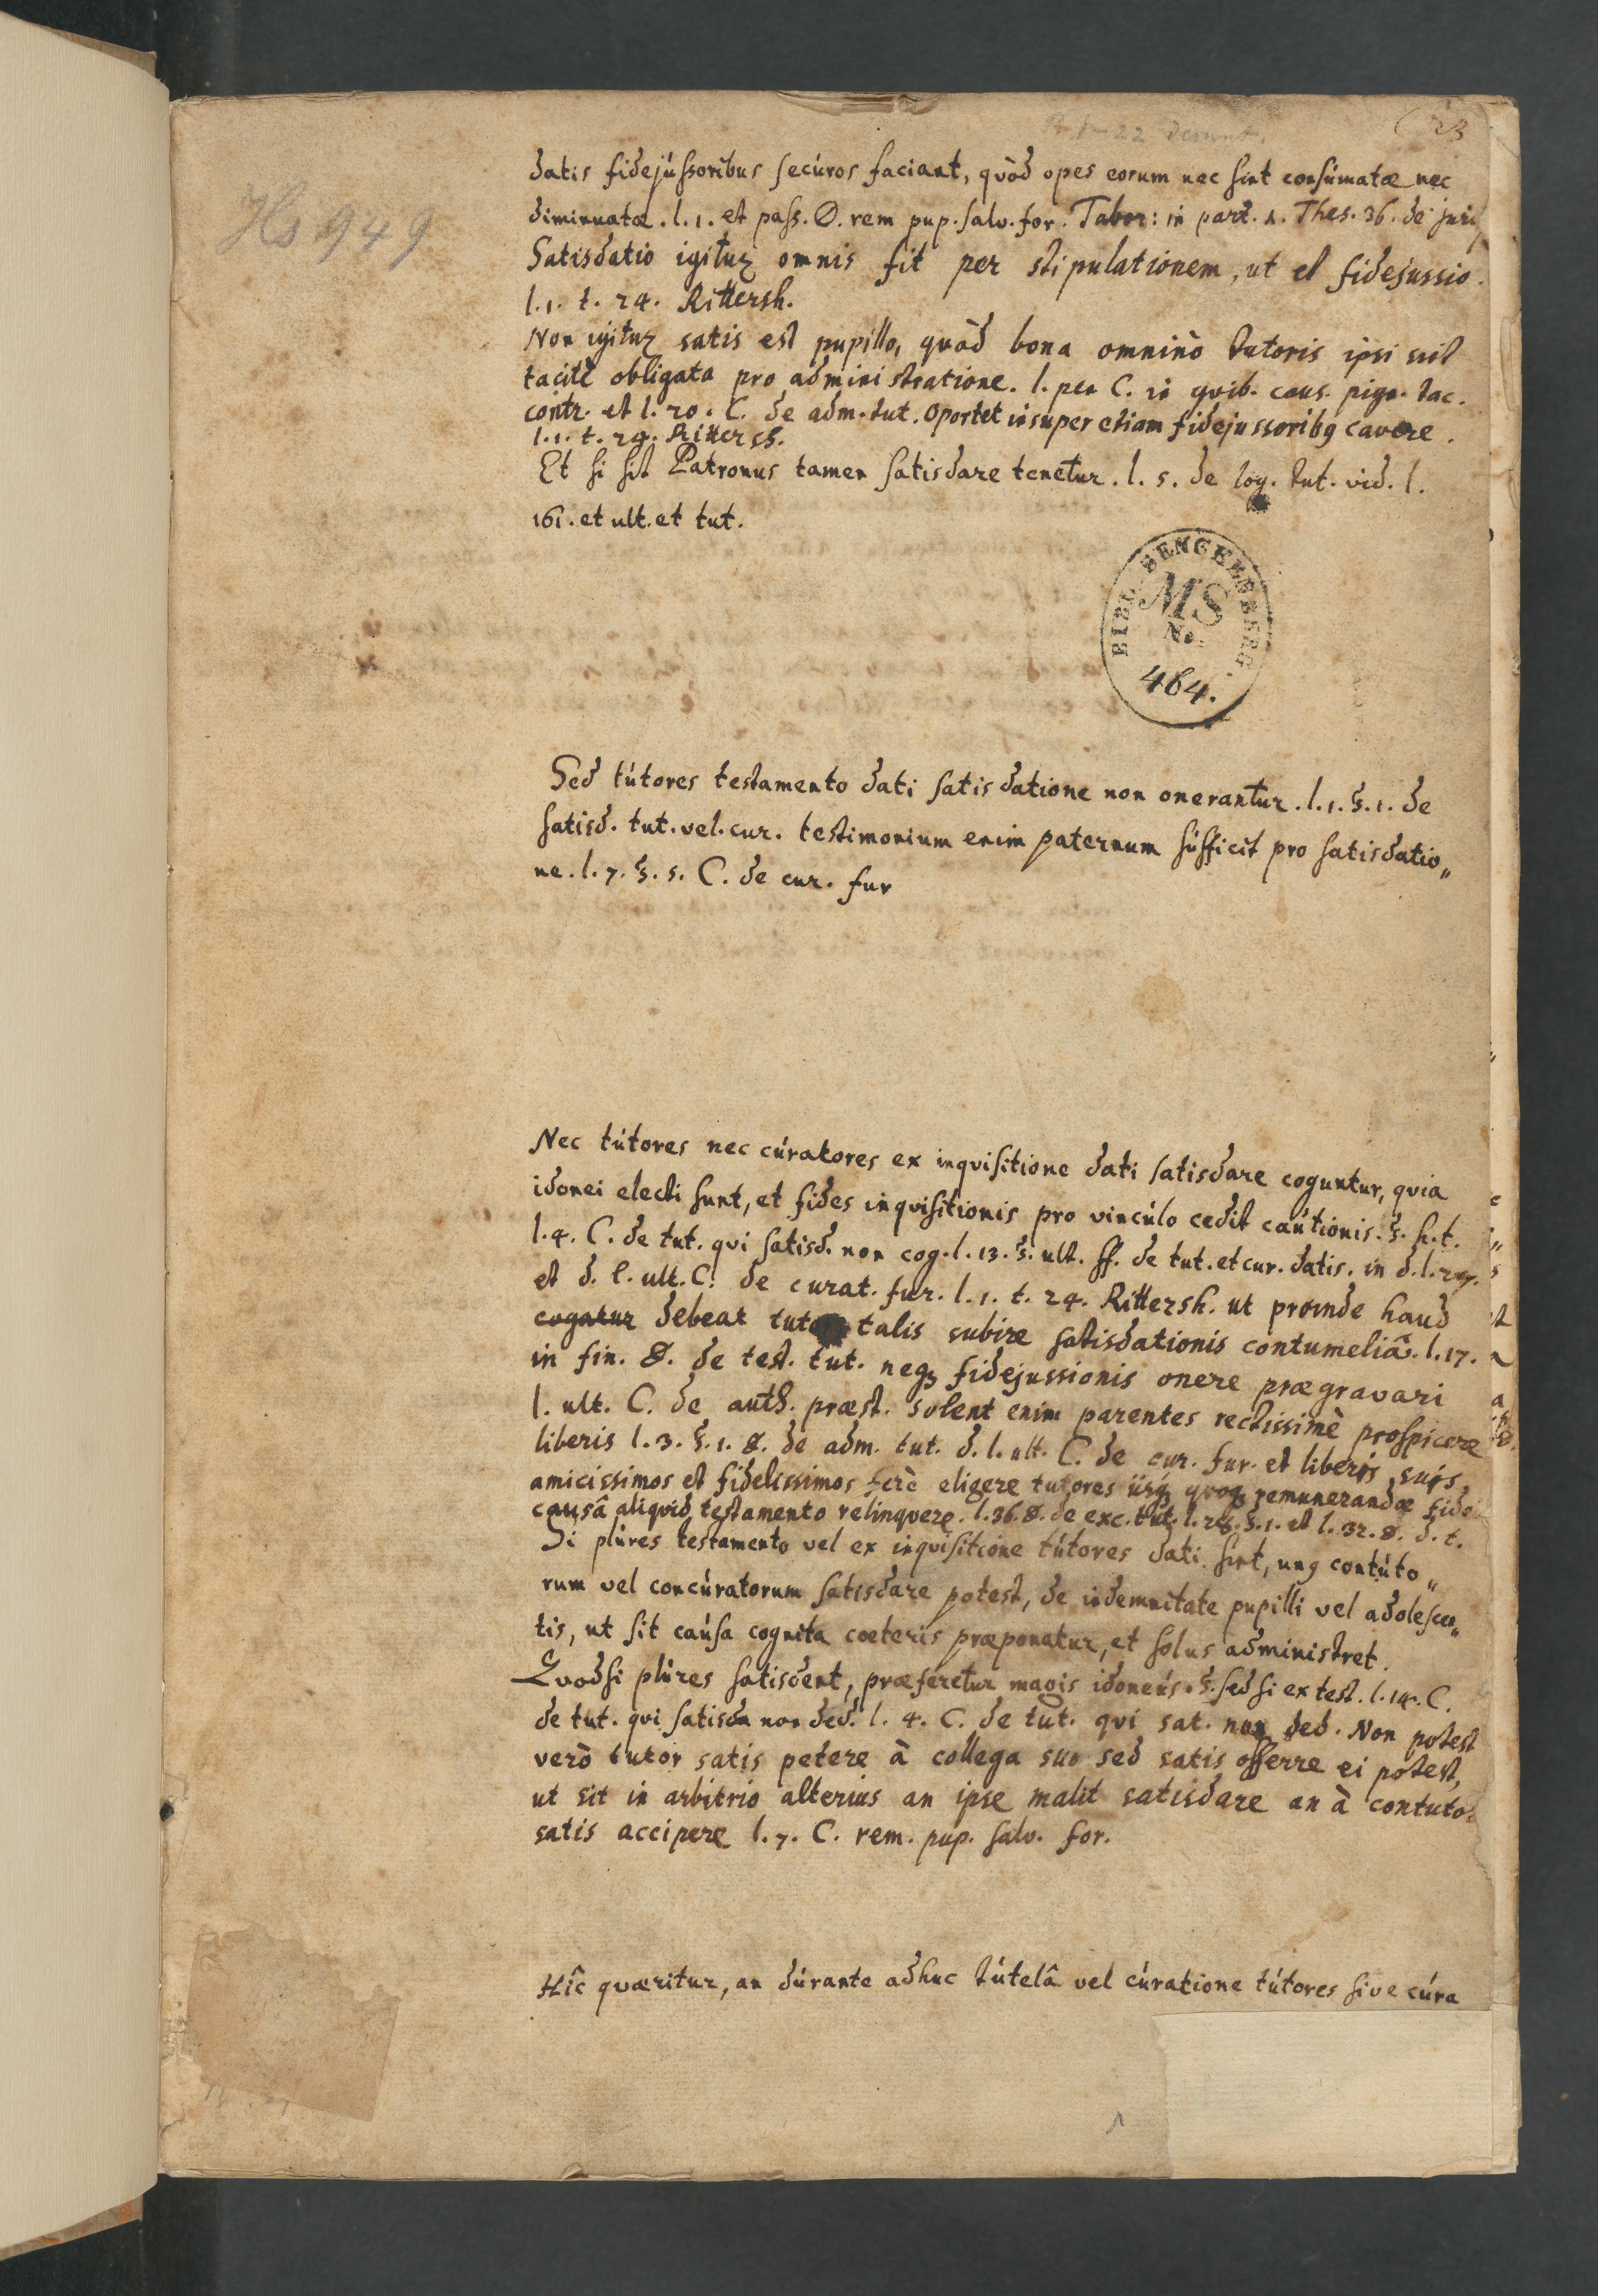 1-22 desunt.
23
Hs 949
datis fidejússoribus secúros faciant, quòd opes eorum nec sint consúmatæ nec
diminuatæ. l. 1. et pass. D. rem pup. salv. for. Tabor: in part. 1. Thes. 36. de juri
Satisdatio igitur omnis fit per stipulationem, ut et fidejussio.
l. 1. t. 24. Rittersh.
Non igitur satis est pupillo, quòd bona omninò tutoris ipsi sint
tacitè obligata pro administratione. l. pen C. in quib. caus. pign. tac.
contr. et l. 20. C. de adm. tut. oportet insuper etiam fidejussoribq cavere.
l. 1. t. 24. Rittersh.
Et si sit Patronus tamen satisdare tenetur. l. 5. de leg. tut. vid. l.
161. et ult. et tut.
BIBL. RENGERSBERG
MS
No.
464.
Sed tútores testamento dati satisdatione non onerantur. l. 1. §. 1. de
satisd. tut. vel. cur. testimonium enim paternum súfficit pro satisdatio„
ne. l. 7. §. 5. C. de cur. fur
Nec tútores nec cúratores ex inquisitione dati satisdare coguntur, quia
idonei electi sunt, et fides inquisitionis pro vincúlo cedit caútionis. §. h. t.
l. 4. C. de tut. qui satisd. non cog. l. 13. §. ult. ff. de tut. et cur. datis. in d. l. 27.
et d. l. ult. C. de curat. fur. l. 1. t. 24. Rittersh. ut proinde haud
cogatur debeat tutor talis subire satisdationis contumeliã. l. 17.
in fin. D. de test. tut. neqz fidejussionis onere prægravari
l. ult. C. de auth. præst. solent enim parentes rectissimè prospicere
liberis l. 3. §. 1. D. de adm. tut. d. l. ult. C. de cur. fur. et liberis suis
amicissimos et fidelissimos ferè eligere tutores iisqz quoqz remunerandæ fidei
causâ aliquid testamento relinquere. l. 36. D. de exc. tut. l. 28. §. 1. et l. 32. D. d. t.
Si plúres testamento vel ex inquisitione tútores dati sint, unq contúto„
rum vel concúratorum satisdare potest, de indemnitate pupilli vel adolescen„
tis, ut sit caúsa cognita cœteris præponatur, et solus administret.
Quodsi plúres satisdent, præferetur magis idoneús. §. sed si ex test. l. 14. C.
de tut. qui satisda non ded. l. 4. C. de tut. qui sat. non ded. Non potest
verò tutor satis petere à collega suo sed satis offerre ei potest,
ut sit in arbitrio alterius an ipse malit satisdare an à contuto:
satis accipere l. 7. C. rem. pup. salv. for.
Hîc quæritur, an dúrante adhuc tútelâ vel cúratione tútores sive cúra
1